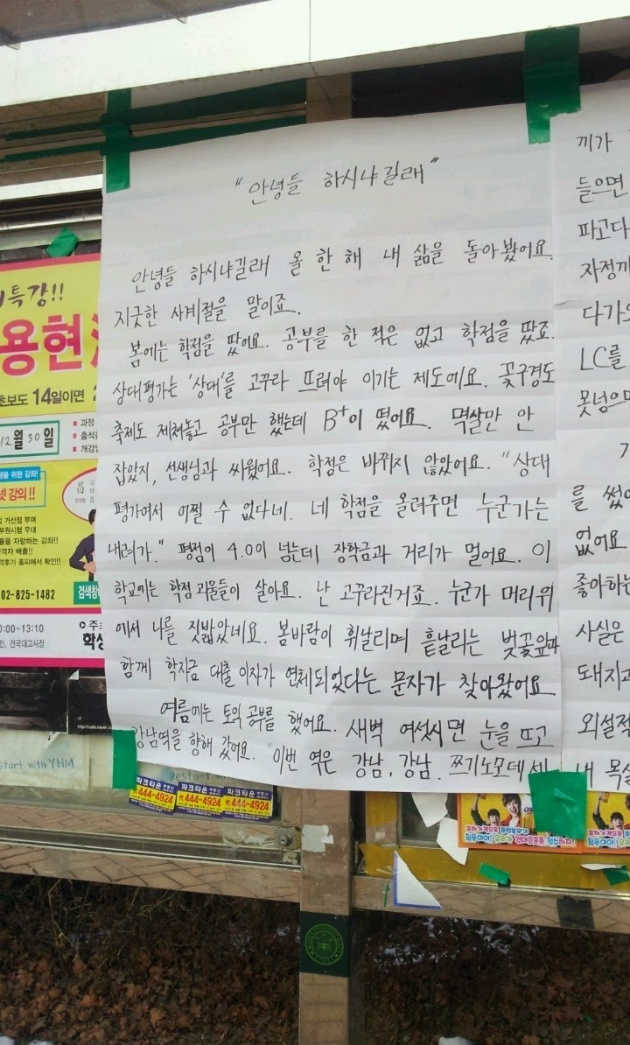 "안녕들 하시냐길래"
안녕들 하시냐길래 올 한 해 내 삶을 돌아봤어요.
지긋한 사계절을 말이죠.
봄에는 학점을 땄어요. 공부를 한 적은 없고 학점을 땄죠.
상대평가는 '상대'를 고꾸라 뜨려야 이기는 제도예요. 꽃구경도
축제도 제쳐놓고 공부만 했는데 B+이 떴어요. 멱살만 안
잡았지, 선생님과 싸웠어요. 학점은 바뀌지 않았어요. "상대
평가여서 어쩔 수 없다네. 네 학점을 올려주면 누군가는
내려가." 평점이 4.0이 넘는데 장학금과 거리가 멀어요. 이
학교에는 학점 괴물들이 살아요. 난 고꾸라진거죠. 누군가 머리위
에서 나를 짓밟았네요. 봄바람이 휘날리며 흩날리는 벚꽃잎과
함께 학자금 대출 이자가 연체되었다는 문자가 찾아왔어요
여름에는 토익 공부를 했어요. 새벽 여섯시면 눈을 뜨고
강남역을 향해 갔어요. 이번 역은 강남, 강남. 쯔기노모데세
끼가
들으면
파고다
자정까
다가오
LC를
못넘으면
를 썼어
없어요
좋아하는
사실은
돼지고
외설적
내 목실
특강!!
용현
초보도 14일이면
12월 30일
과정
출석
개강
넷 강의!!
02-825-1482
검색창
0:00~13:10
start with YHM
파크타운
444-4924
파크타운
444-4924
파크타운
444-4924